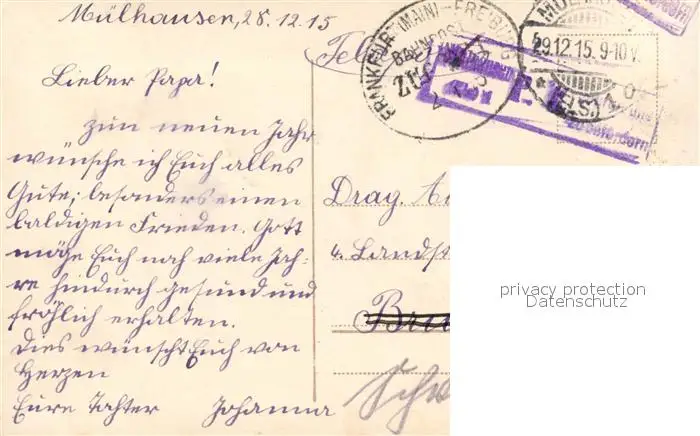 Mülhausen, 28.12.15
Lieber Papa!
Zum neuen Jahr
wünsche ich Euch alles
Gute; besonders einen
baldigen Frieden. Gott
möge Euch noch viele Jah-
re hindurch gesund und
fröhlich erhalten.
Dies wünscht Euch von
Herzen
Eure Tochter Johanna
FRANKFURT (MAIN) - FREIBURG
BAHNPOST
ZUG
29.12.15. 9-10 V.
(ELS.) 1
Drag.
4. Landst
privacy protection
Datenschutz